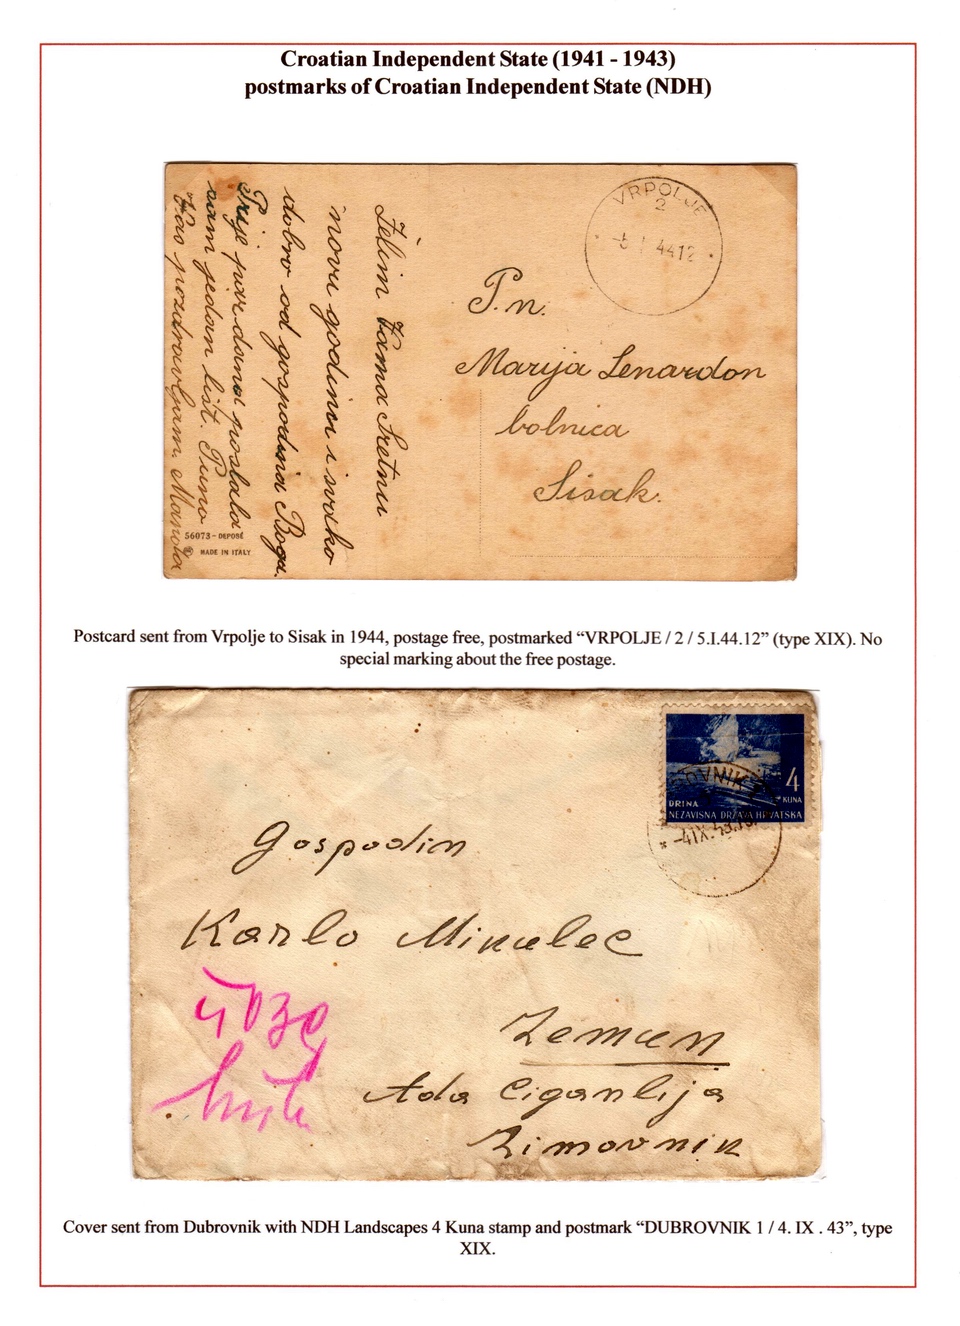 Croatian Independent State (1941 - 1943)
postmarks of Croatian Independent State (NDH)
VRPOLJE
2
-5 I 44 12
Želim Vama Sretnu
novu godinu i svako
dobro od gospodina Boga.
Prije par dana poslala
sam jedan list. Puno
Vas pozdravljam. Manda
56073 - DEPOSÉ
MADE IN ITALY
P.n.
Marija Lenardon
bolnica
Sisak.
Postcard sent from Vrpolje to Sisak in 1944, postage free, postmarked “VRPOLJE / 2 / 5.I.44.12” (type XIX). No
special marking about the free postage.
4
KUNA
DRINA
NEZAVISNA DRŽAVA HRVATSKA
OVNIK
-4 IX. 43
Gospodin
Karlo Mikulec
Zemun
Ada Ciganlija
Zimovnik
Cover sent from Dubrovnik with NDH Landscapes 4 Kuna stamp and postmark “DUBROVNIK 1 / 4. IX . 43”, type
XIX.